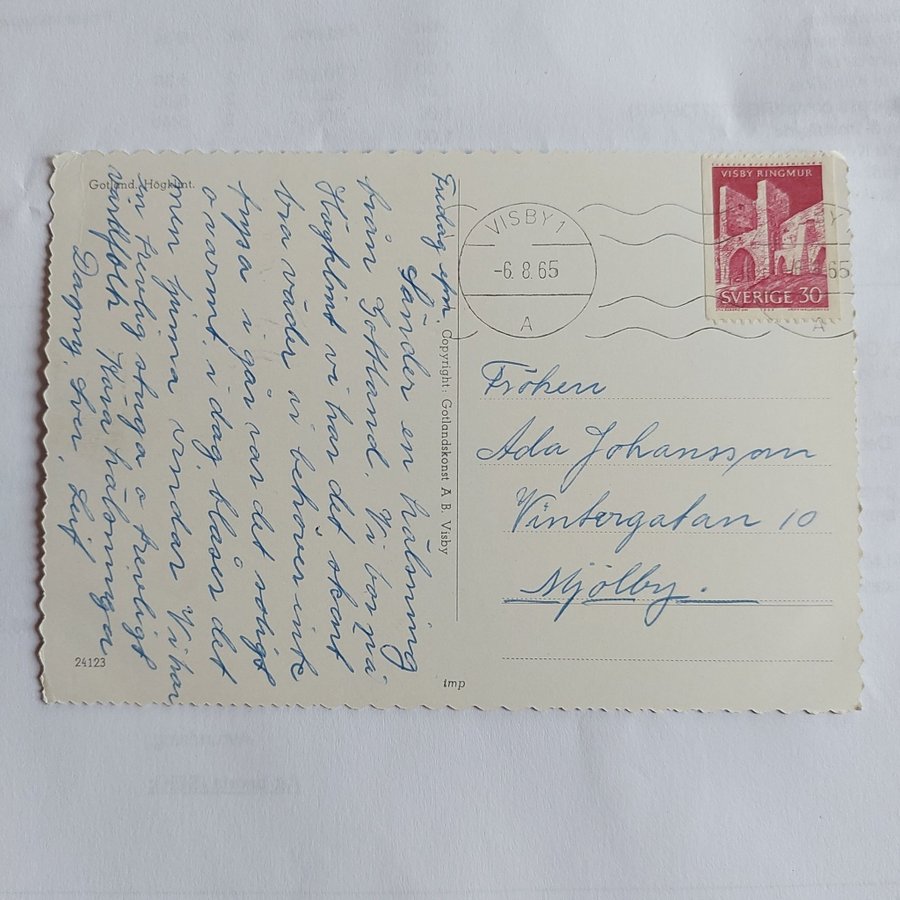 Gotland. Högklint.
Fredag efm.
Sänder en hälsning
från Gotland. Vi bor på
Högklint vi har det skönt
bra väder vi behöver inte
frysa i går var det soligt
o varmt, i dag blåser det
men ljumma vindar Vi har
en trevlig stuga o trevligt
värdfolk Kära hälsningar
Dagny, Iver, Leif
24123
Copyright: Gotlandskonst A B. Visby
imp
VISBY 1
-6. 8. 65
A
VISBY RINGMUR
SVERIGE 30
Fröken
Ada Johansson
Vintergatan 10
Mjölby.